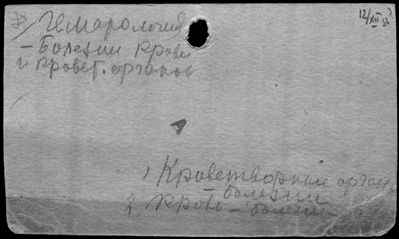 12/XII
Гематология
- Болезни крови
и кровет. органов
1 Кроветворные орган
- болезни
2. Кровь - болезни